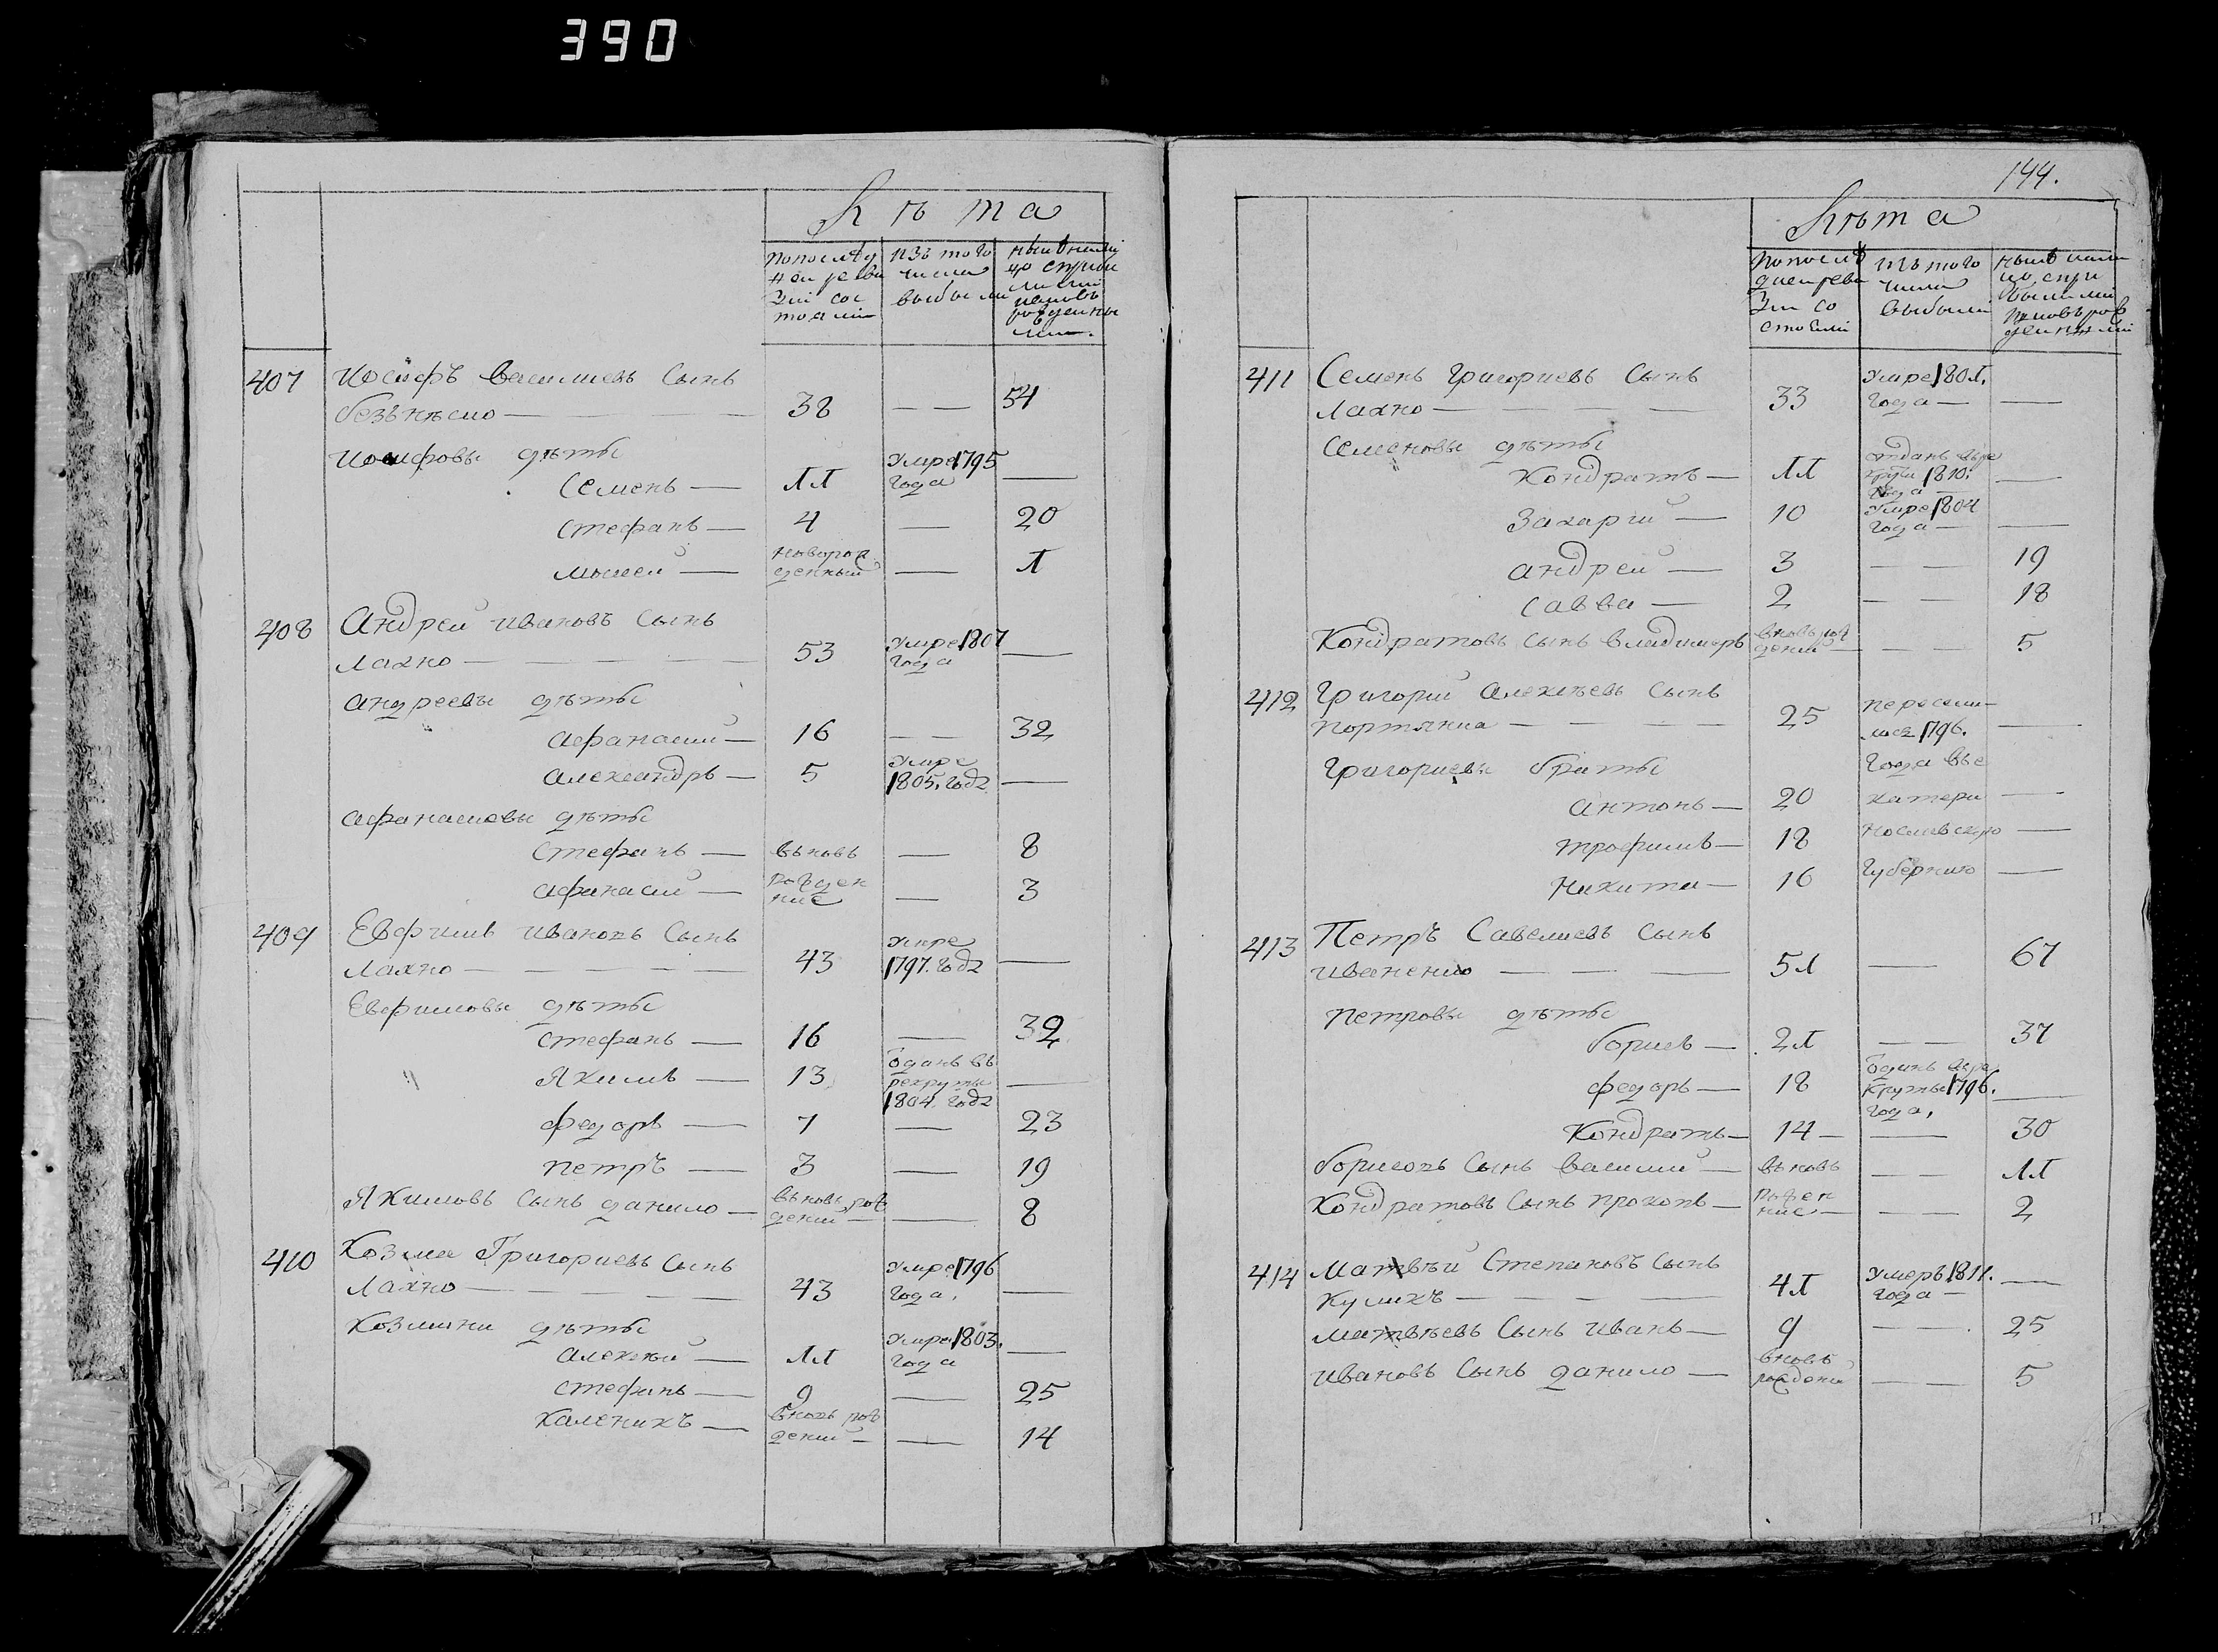 390
Лѣта
по послѣд
ней реви
зіи сос
тояли
изъ того
числа
выбыли
нынѣ на ли
цо
407 Иосифъ Василиевъ Сынъ
безъкѣсно — 38 — — 54
иосифовы дѣты
Семенъ — 11 Умре 1795 года —
стефанъ — 4 — 20
мысей — новорож денный — 1
408 Андрей ивановъ Сынъ
Лахно — 53 Умре 1807 года —
андреевы дѣты
афанасий — 16 — — 32
александръ — 5 Умре 1805. года —
афанасиевы дѣты
стефанъ — вновь — 8
афанасий — рожден ние — 3
409 Евфимъ ивановъ Сынъ
Лахно — 43 Умре 1797. года —
Евфимовы дѣты
стефанъ — 16 — 32
Якимъ — 13 Одань въ рекруты 1804. года —
федоръ — 7 — 23
петръ — 3 — 19
Якимовъ Сынъ данило — вновь рож дений — — 8
410 Козма Григориевъ Сынъ
Лахно — 43 Умре 1796 года. —
Козмини дѣты
алексѣй — 11 Умре 1803. года —
стефанъ — 9 — 25
каленикъ — вновь рож дений — — 14
144.
Лѣта
по послѣ
дней реви
зіи со
стояли
изъ того
числа
выбыли
нынѣ на ли
411 Семенъ Григориевъ Сынъ
Лахно — 33 Умре 1801. года — —
Семеновы дѣты
Кондратъ — 11 отданъ въ ре круты 1810: года —
Захарий — 10 Умре 1804 года — —
андрей — 3 — — 19
савва — 2 — — 18
Кондратовъ Сынъ владимеръ вновь рож дений — — — 5
412 Григорий алексѣевъ Сынъ
портянка — 25 пересели лися 1796. —
Григориевы браты года въ е
антонъ — 20 катери —
трофимъ — 18 нославскую —
Никита — 16 Губернию —
413 Петръ Савелиевъ Сынъ
иваненко — 51 — 67
петровы дѣты
борисъ — 21 — — 37
федоръ — 18 Одань въ ре круты 1796. года, —
Кондратъ — 14 — — 30
борисовъ Сынъ василий — вновь — — 11
Кондратовъ Сынъ прокопъ — рожден ние — — — 2
414 Матвѣй Степановъ Сынъ
Куликъ — 41 Умеръ 1811. года — —
матвѣевъ Сынъ иванъ — 9 — — 25
ивановъ Сынъ данило — вновь рождени — — 5